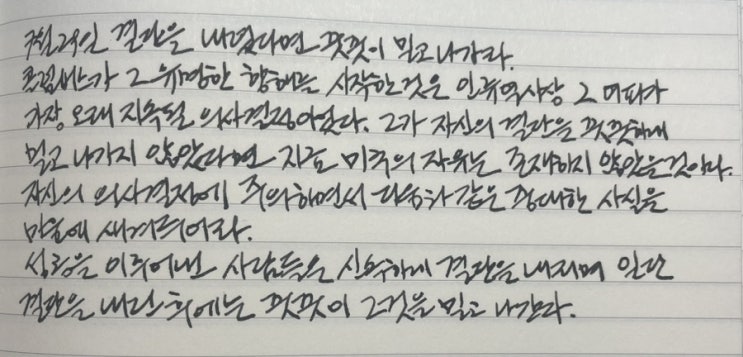 7월 29일 결단을 내렸다면 꿋꿋이 밀고 나가라.
콜럼버스가 그 유명한 항해를 시작한 것은 인류역사상 그 여파가
가장 오래 지속될 의사결정이었다. 그가 자신의 결단을 꿋꿋하게
밀고 나가지 않았다면 지금 미국의 자유는 존재하지 않았을 것이다.
자신의 의사결정에 주의하면서 다음과 같은 중대한 사실을
마음에 새겨두어라.
성공을 이루어낸 사람들은 신속하게 결단을 내리며 일단
결단을 내린 후에는 꿋꿋이 그것을 밀고 나간다.